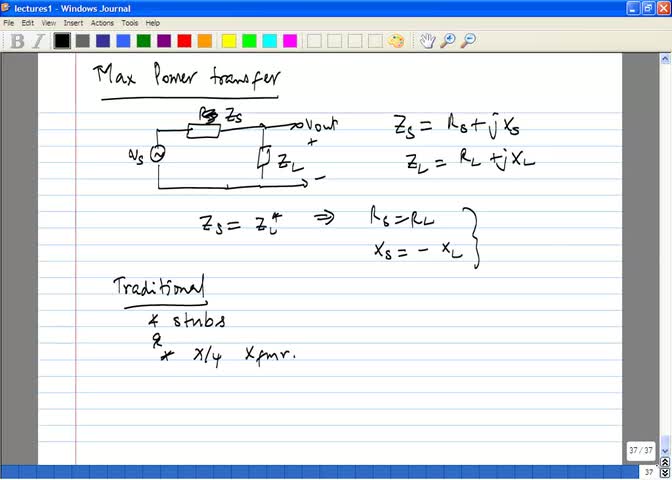 lectures1 - Windows Journal
File Edit View Insert Actions Tools Help
B I
Max Power transfer
Zs Vout
+
vs ZL
-
Zs = Rs + jXs
ZL = RL + jXL
Zs = ZL* ⇒ Rs = RL
Xs = - XL
Traditional
* stubs
* λ/4 Xfmr.
37 / 37
37 / 37